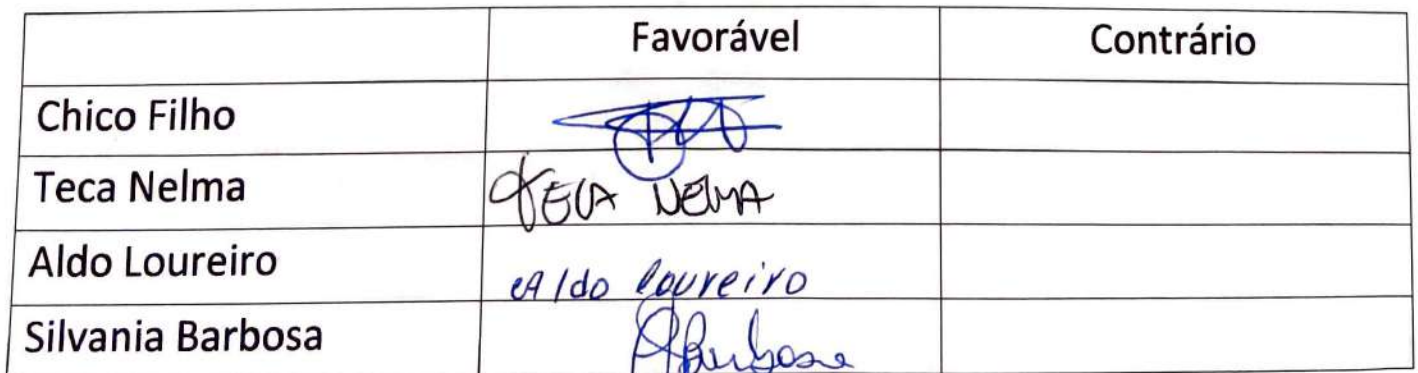 Favorável Contrário
Chico Filho
Teca Nelma TECA NELMA
Aldo Loureiro Aldo Loureiro
Silvania Barbosa Barbosa